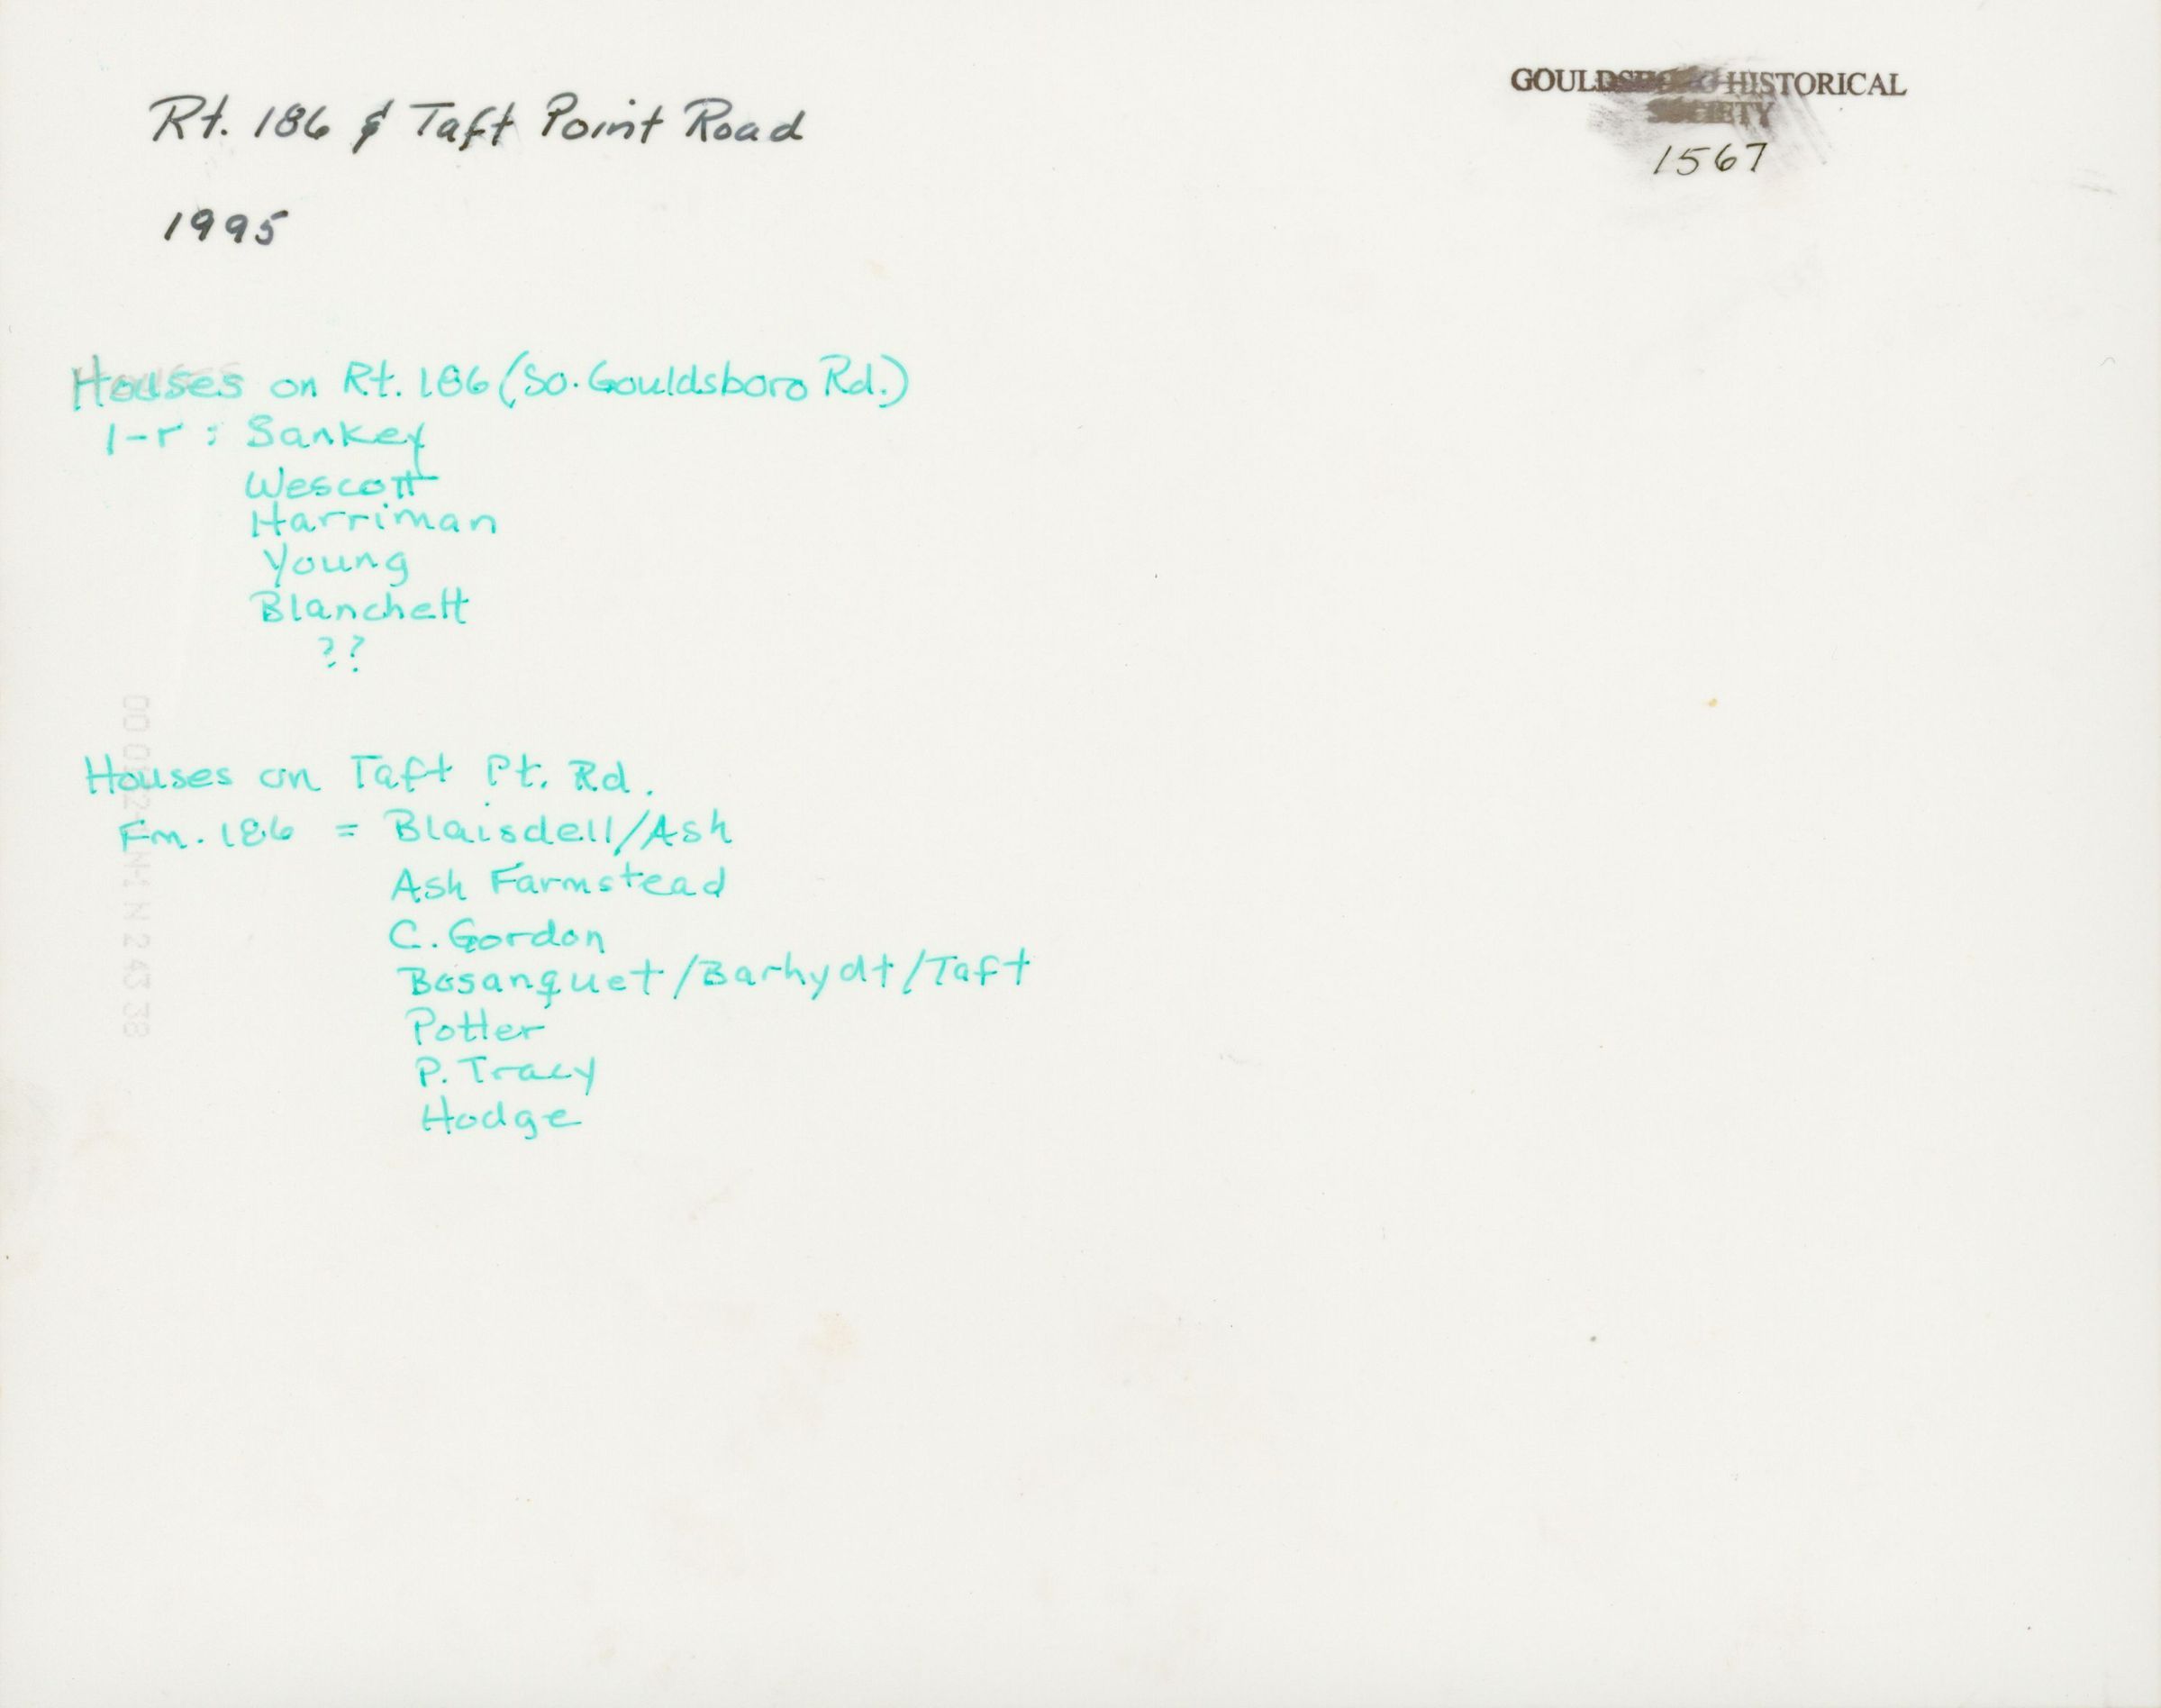 Rt. 186 & Taft Point Road
1995
GOULDSBORO HISTORICAL
SOCIETY
1567
Houses on Rt. 186 (So. Gouldsboro Rd.)
l-r : Sankey
Wescott
Harriman
Young
Blanchett
??
Houses on Taft Pt. Rd.
Fm. 186 = Blaisdell/Ash
Ash Farmstead
C. Gordon
Bosanquet/Barhydt/Taft
Potter
P. Tracy
Hodge